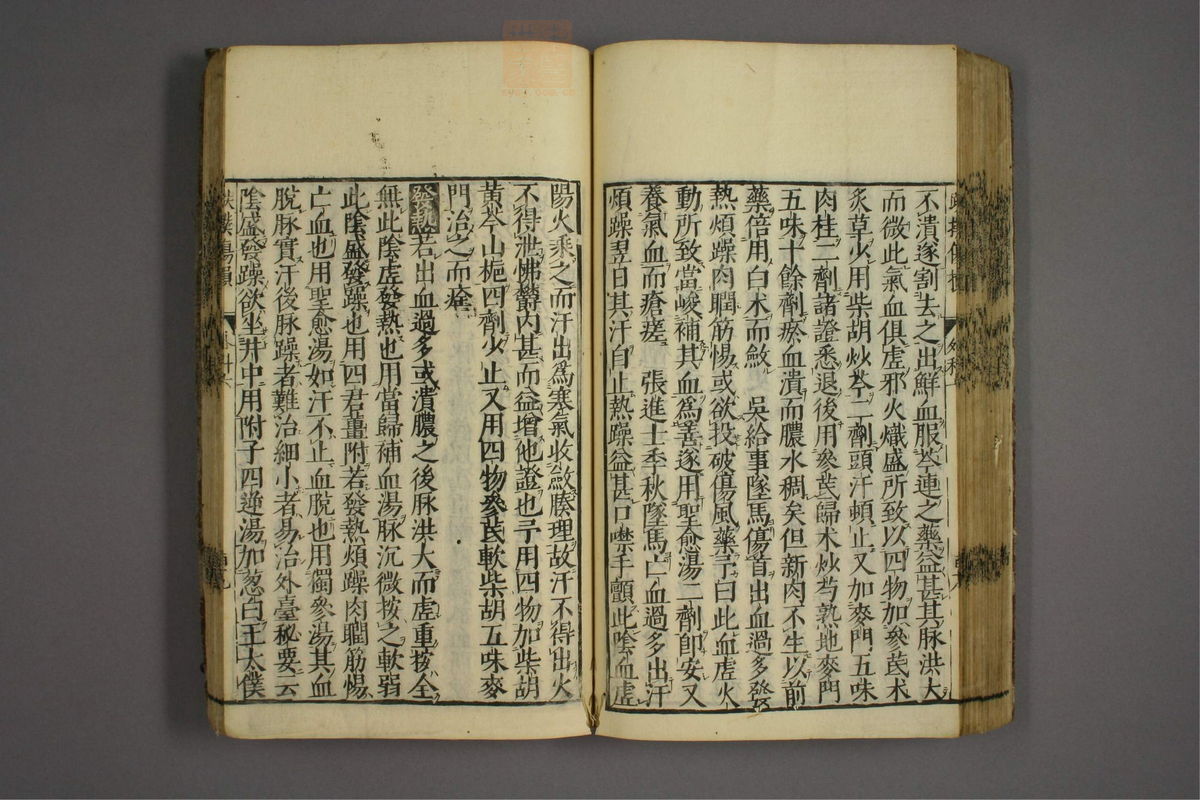 不潰遂割去之出鮮血服芩連之藥益甚其脉洪大
而微此氣血俱虛邪火熾盛所致以四物加參芪朮
炙草火用柴胡炒芩二劑頭汗頓止又加麥門五味
肉桂二劑諸證悉退後用參芪歸朮炒芍熟地麥門
五味十餘劑瘀血潰而膿水稠矣但新肉不生以前
藥倍用白朮而斂 吳給事墜馬傷首出血過多發
熱煩躁肉瞤筋惕或欲投破傷風藥予曰此血虛火
動所致當峻補其血爲善遂用聖愈湯二劑卽安又
養氣血而瘡瘥 張進士季秋墜馬亡血過多出汗
煩躁翌日其汗自止熱躁益甚口噤手顫此陰血虛
陽火乘之而汗出爲寒氣收斂腠理故汗不得出火
不得泄怫鬱內甚而益增他證也予用四物加柴胡
黃芩山梔四劑少止又用四物參芪軟柴胡五味麥
門治之而痊
發熱若出血過多或潰膿之後脉洪大而虛重按全
無此陰虛發熱也用當歸補血湯脉沉微按之軟弱
此陰盛發躁也用四君薑附若發熱煩躁肉瞤筋惕
亡血也用聖愈湯如汗不止血脫也用獨參湯其血
脫脉實汗後脉躁者難治細小者易治外臺秘要云
陰盛發躁欲坐井中用附子四逆湯加葱白王太僕